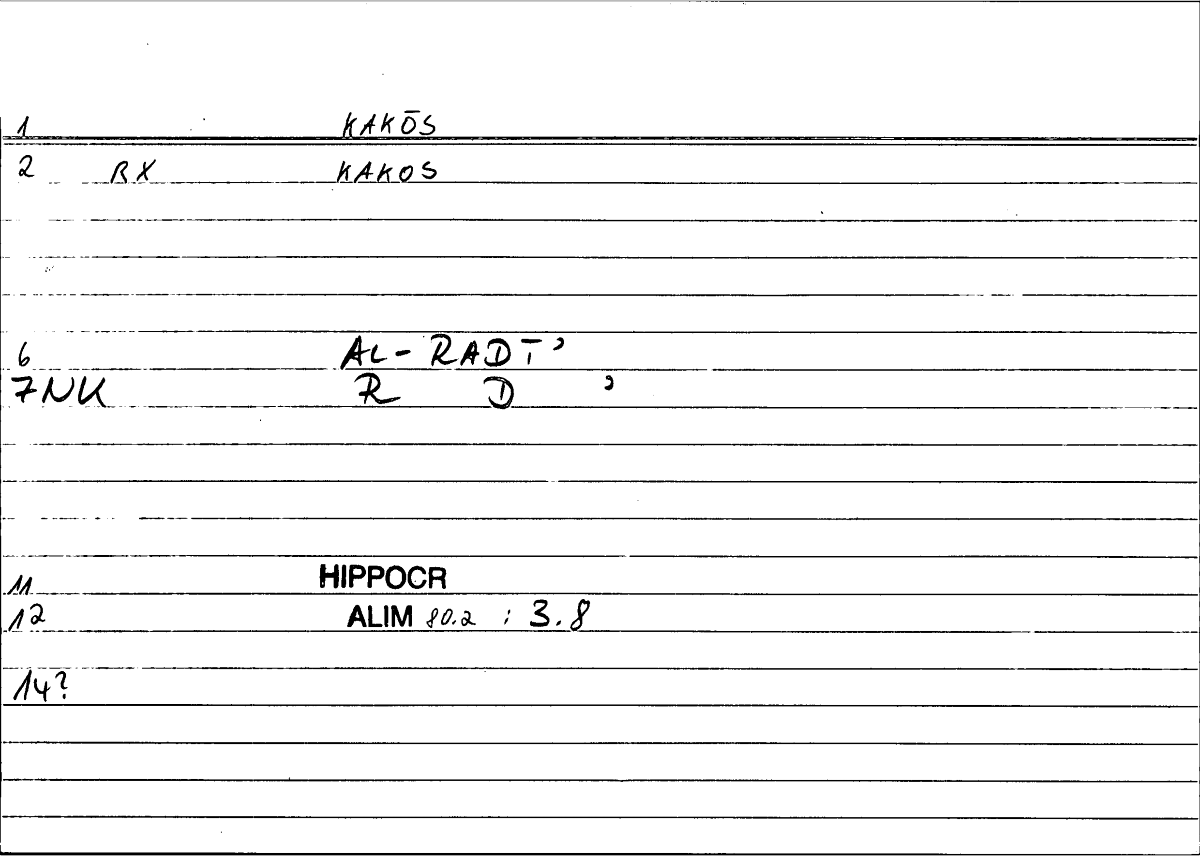 1 KAKŌS
2 RX KAKOS
6 AL-RADĪ’
7NK R D ’
11 HIPPOCR
12 ALIM 80.2 : 3.8
14?